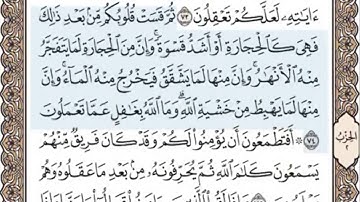 ءَايَٰتِهِۦ لَعَلَّكُمْ تَعْقِلُونَ ٧٣ ثُمَّ قَسَتْ قُلُوبُكُم مِّنۢ بَعْدِ ذَٰلِكَ
فَهِىَ كَٱلْحِجَارَةِ أَوْ أَشَدُّ قَسْوَةً ۚ وَإِنَّ مِنَ ٱلْحِجَارَةِ لَمَا يَتَفَجَّرُ
مِنْهُ ٱلْأَنْهَٰرُ ۚ وَإِنَّ مِنْهَا لَمَا يَشَّقَّقُ فَيَخْرُجُ مِنْهُ ٱلْمَآءُ ۚ وَإِنَّ
مِنْهَا لَمَا يَهْبِطُ مِنْ خَشْيَةِ ٱللَّهِ ۗ وَمَا ٱللَّهُ بِغَٰفِلٍ عَمَّا تَعْمَلُونَ
٧٤ ۞ أَفَتَطْمَعُونَ أَن يُؤْمِنُوا۟ لَكُمْ وَقَدْ كَانَ فَرِيقٌ مِّنْهُمْ
يَسْمَعُونَ كَلَٰمَ ٱللَّهِ ثُمَّ يُحَرِّفُونَهُۥ مِنۢ بَعْدِ مَا عَقَلُوهُ وَهُمْ